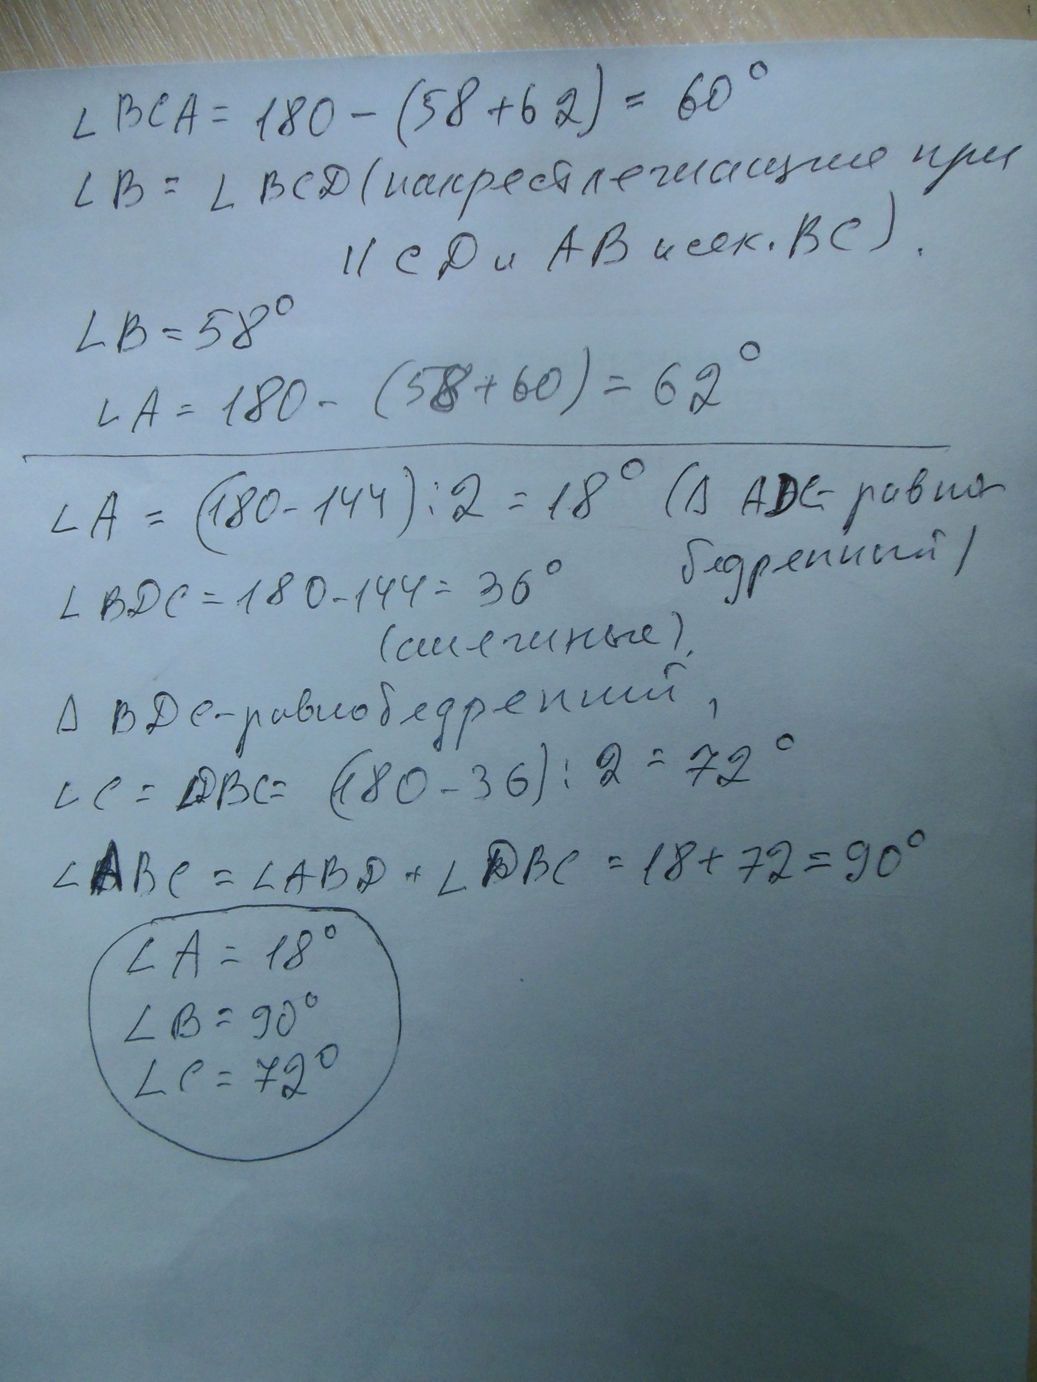 ∠BCA = 180 - (58+62) = 60°
∠B = ∠BCD (накрест лежащие при
|| CD и AB и сек. BC).
∠B = 58°
∠A = 180 - (58+60) = 62°
∠A = (180-144):2 = 18° (Δ ADC- равно
бедренный)
∠BDC = 180-144 = 36°
(смежные),
Δ BDC-равнобедренный,
∠C = ∠DBC = (180-36):2 = 72°
∠ABC = ∠ABD + ∠DBC = 18+72 = 90°
∠A = 18°
∠B = 90°
∠C = 72°